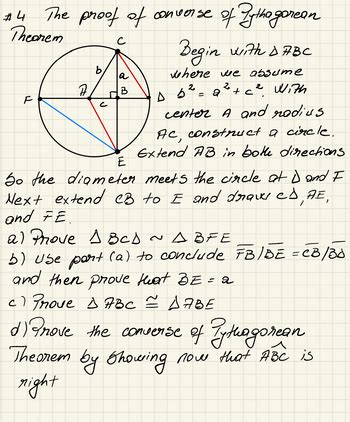 #4 The proof of converse of Pythagorean
Theorem
C
b
a
F
A
B
D
c
E
Begin with Δ ABC
where we assume
b² = a² + c². With
center A and radius
AC, construct a circle.
Extend AB in both directions
So the diameter meets the circle at D and F
Next extend CB to E and draw CD, AE,
and FE.
a) Prove Δ BCD ~ Δ BFE
b) Use part (a) to conclude FB/BE = CB/BD
and then prove that BE = a
c) Prove Δ ABC ≅ Δ ABE
d) Prove the converse of Pythagorean
Theorem by showing now that ABC is
right